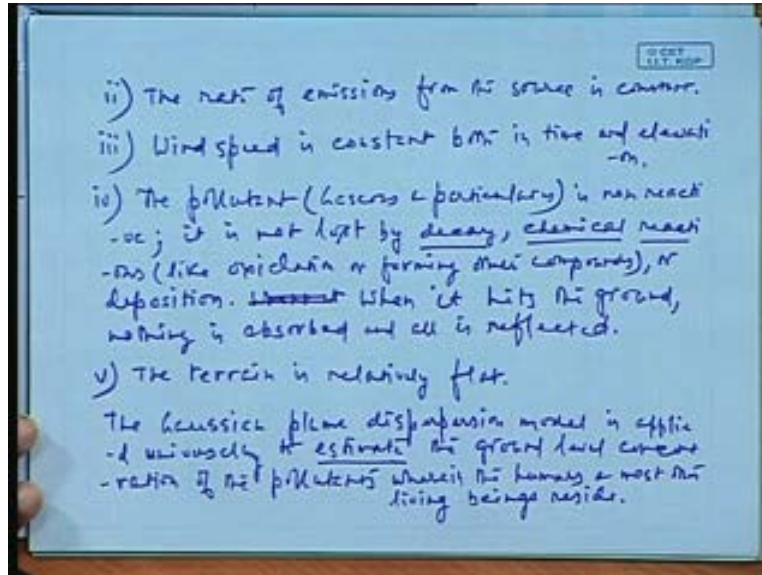 © CET
I.I.T. KGP
ii) The rate of emissions from the source is constant.
iii) Wind speed is constant both in time and elevati
-on.
iv) The pollutant (Gaseous & particulates) is non reacti
-ve; it is not lost by decay, chemical reacti
-ons (like oxidation or forming other compounds), or
deposition. When it hits the ground,
nothing is absorbed and all is reflected.
v) The terrain is relatively flat.
The Gaussian plume dispersion model is applie
-d universally to estimate the ground level concent
-ration of the pollutants wherein the humans & most the
living beings reside.